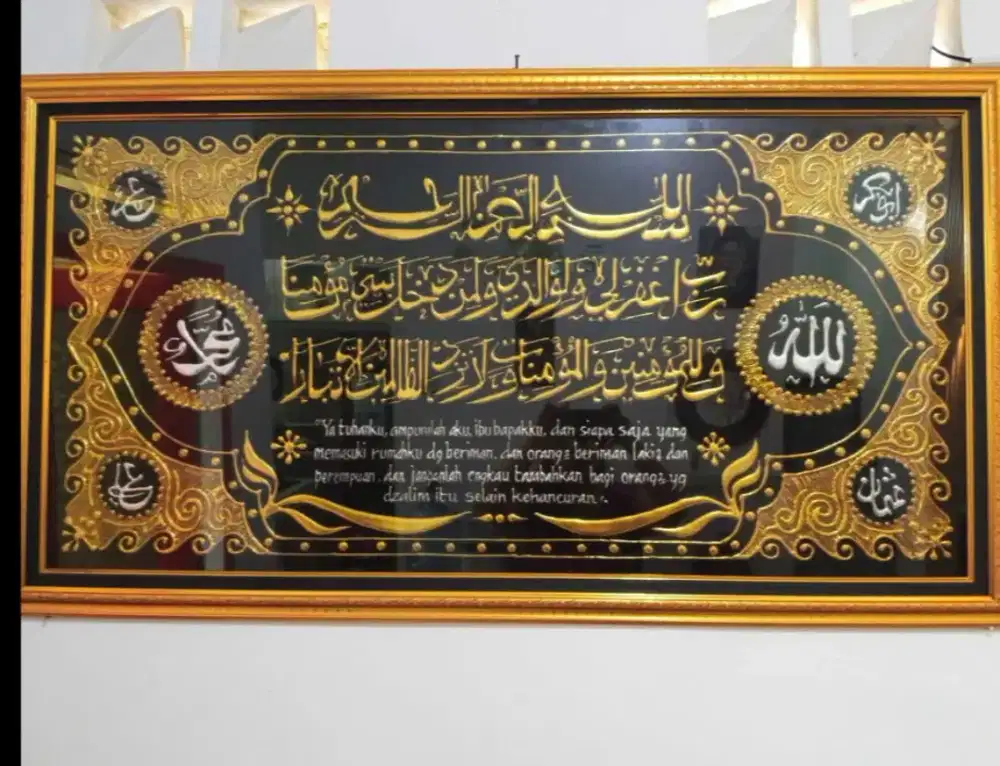 ابوبكر
عمر
بسم الله الرحمن الرحيم
رب اغفرلي ولوالدي ولمن دخل بيتي مؤمنا
الله
محمد
وللمؤمنين والمؤمنات ولا تزد الظالمين الا تبارا
"Ya tuhanku, ampunilah aku, ibu bapakku, dan siapa saja yang
memasuki rumahku dg beriman, dan orang2 beriman laki2 dan
perempuan, dan janganlah engkau tambahkan bagi orang2 yg
dzalim itu selain kehancuran".
عثمان
علي